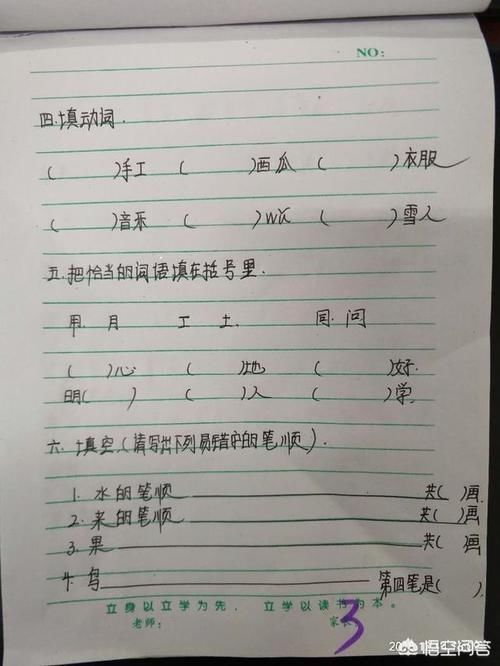 NO:
四.填动词.
( )手工 ( )西瓜 ( )衣服
( )音乐 ( ) ( )雪人
五.把恰当的词语填在括号里.
用 月 工 土 同 问
( )心 ( )地 ( )好
明( ) ( )人 ( )学
六.填空(请写出下列易错字的笔顺).
1.水的笔顺 共( )画
2.来的笔顺 共( )画
3.果 共( )画
4.鸟 第四笔是( ).
立身以立学为先, 立学以读书为本。
老师: 家长
3
悟空问答